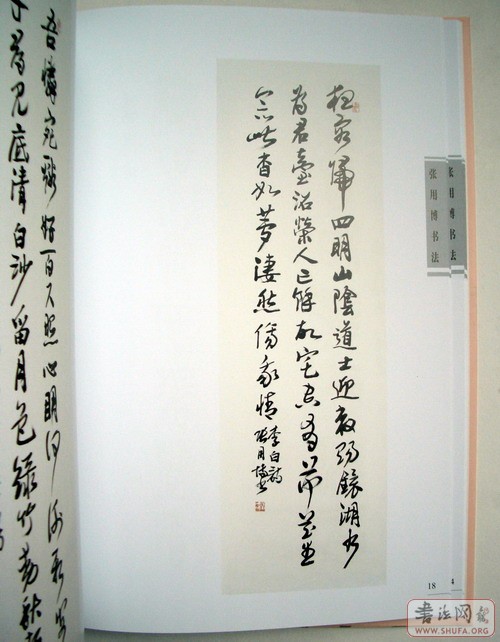 吾憐宛溪好百尺照心明何謝新
尋見底清白沙留月色綠竹助秋
狂客歸四明山陰道士迎敕賜鏡湖水
為君臺沼榮人亡餘故宅空有荷花生
念此杳如夢淒然傷我情
李白詩
張用博書
张用博书法
张用博书法
18
书法网
WWW.SHUFA.ORG